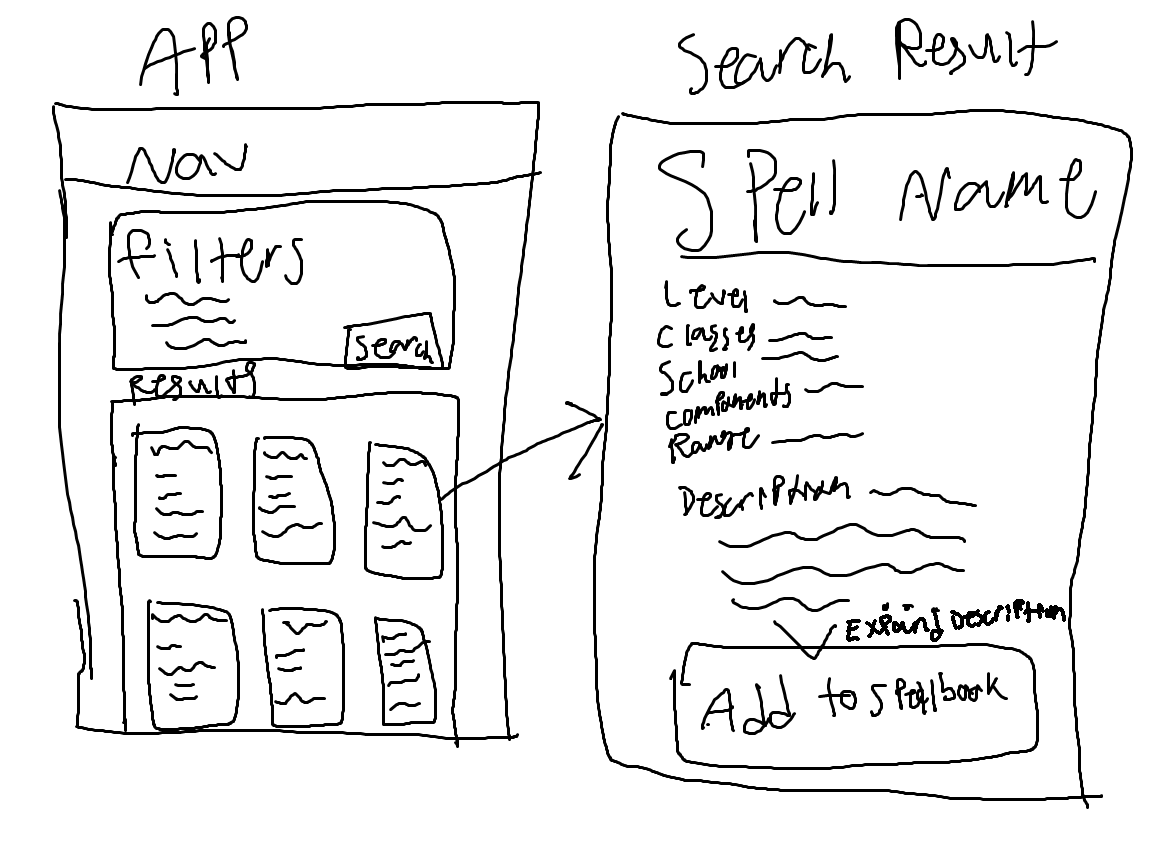 App
Nav
Filters
Search
Results
Search Result
Spell Name
Level
Classes
School
Components
Range
Description
Expand Description
Add to Spellbook